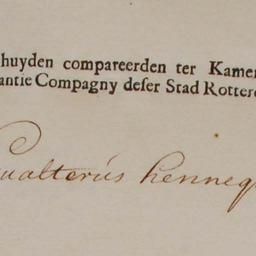 huyden compareerden ter Kamer
antie Compagny deser Stad Rotterd
Gualterus hennequ